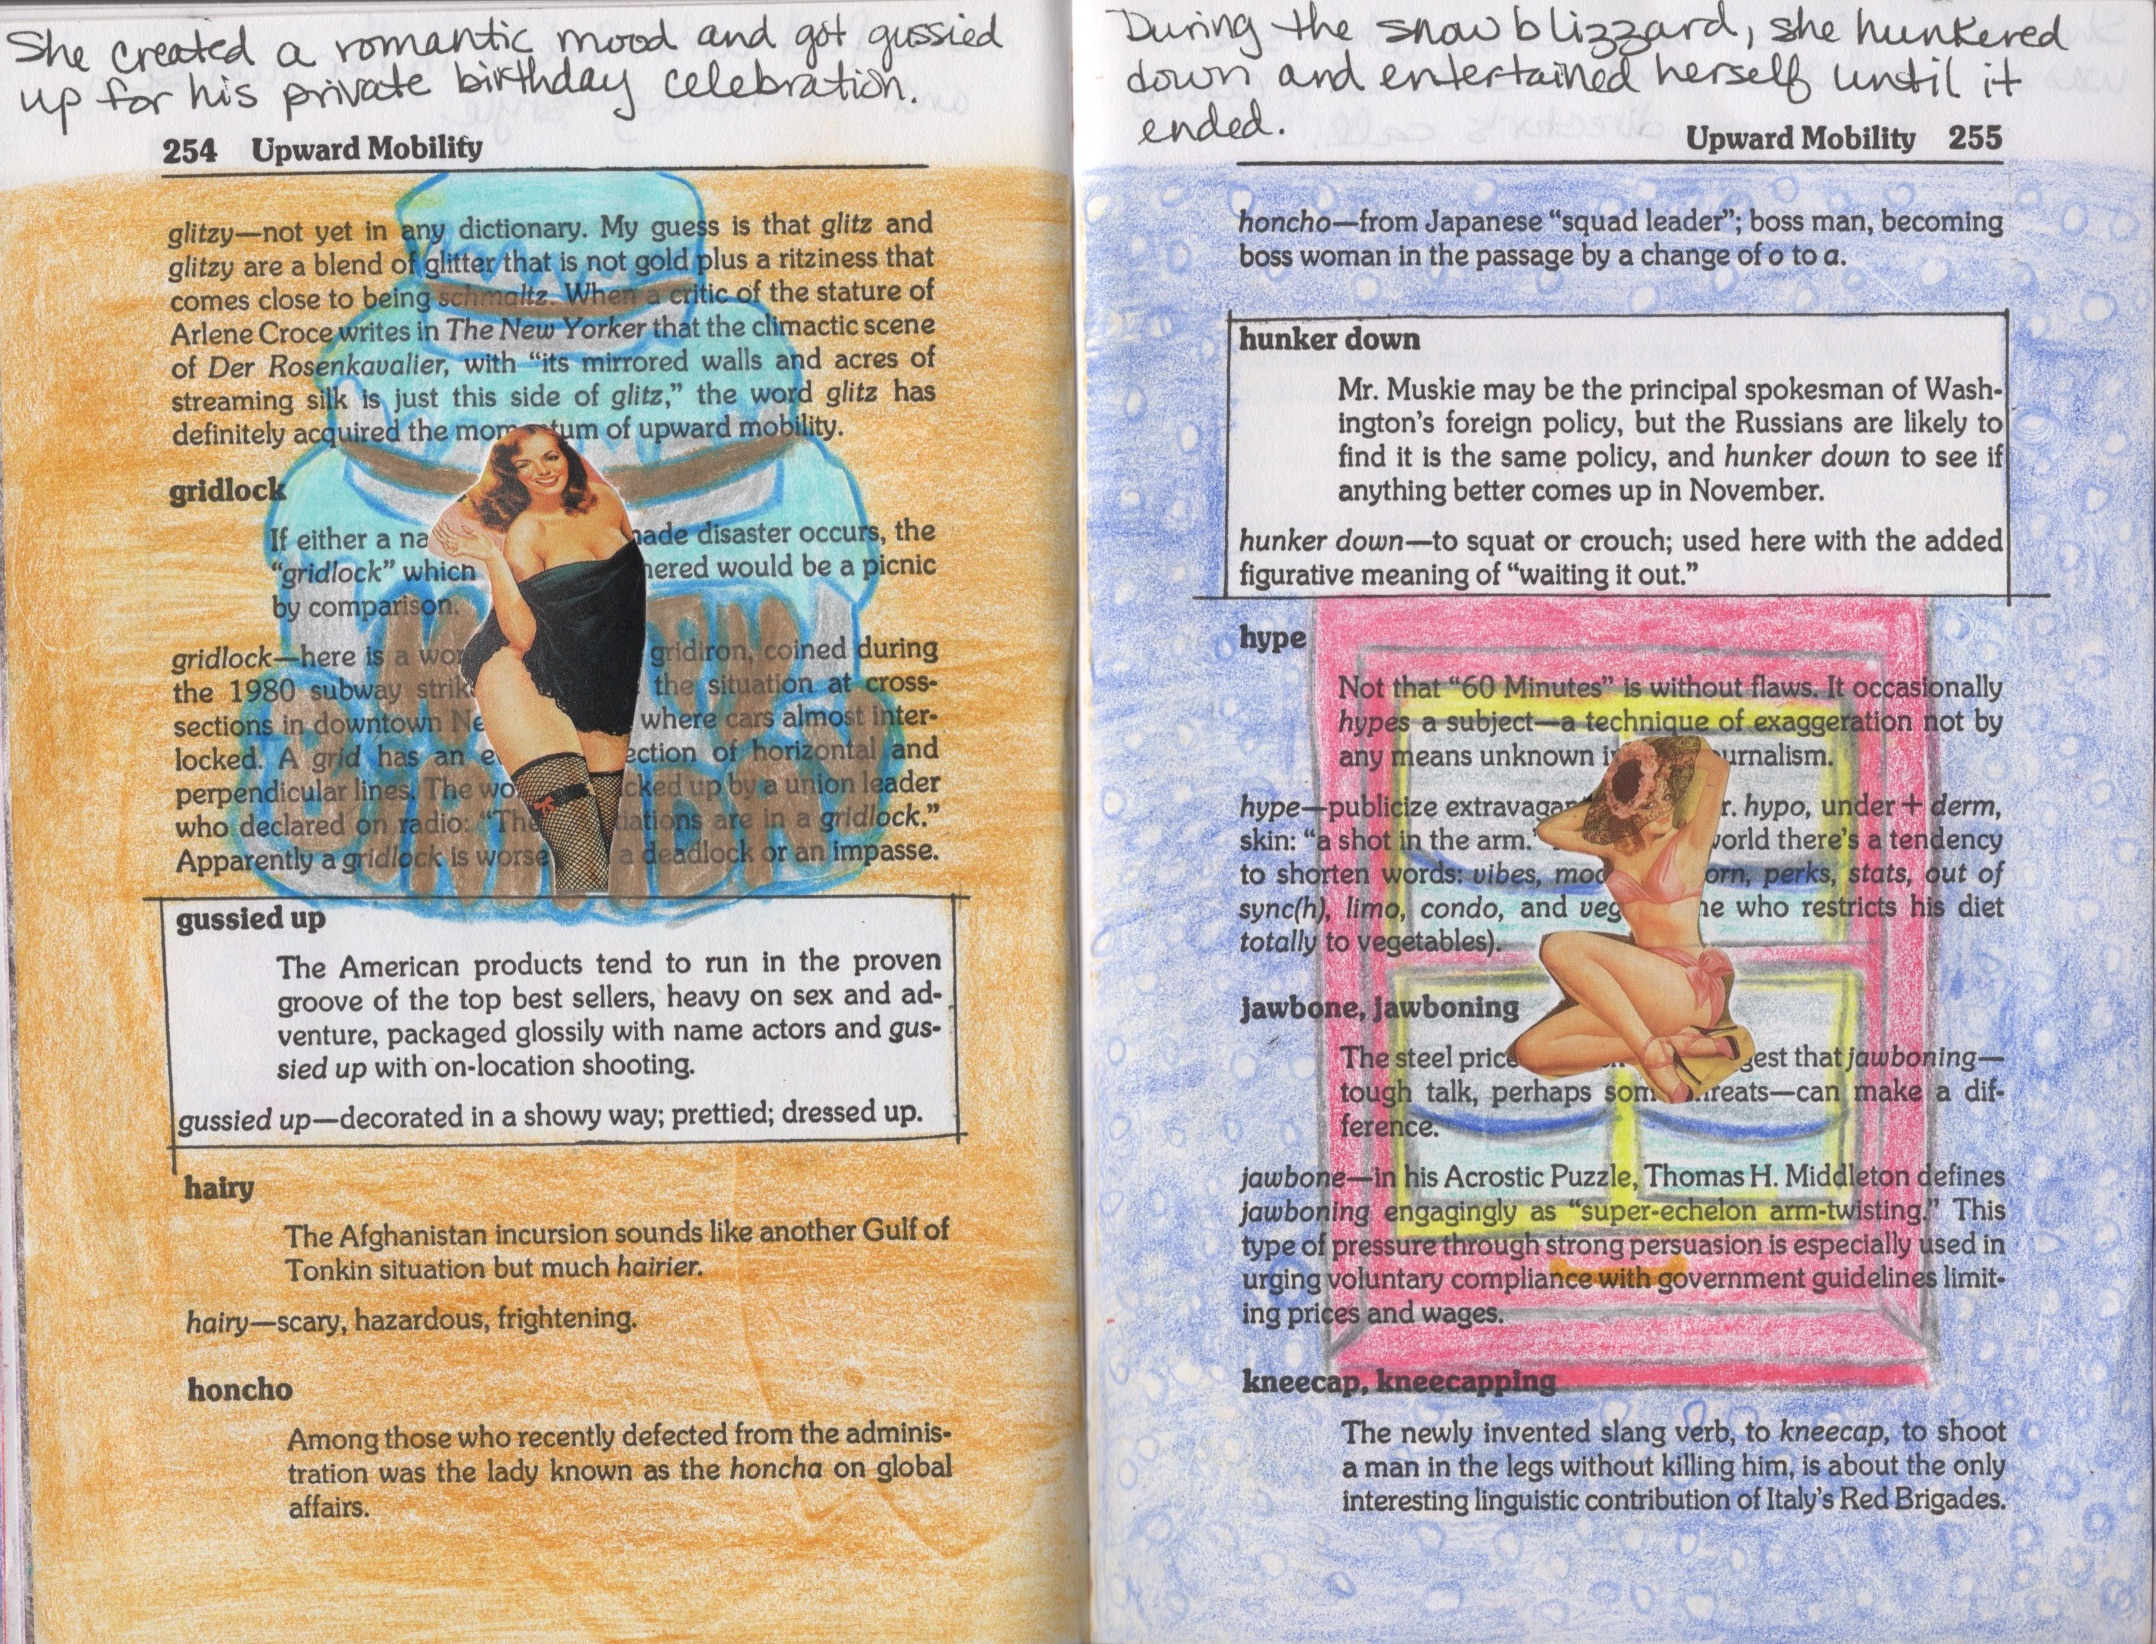 She created a romantic mood and got gussied
up for his private birthday celebration.
254 Upward Mobility
glitzy—not yet in any dictionary. My guess is that glitz and
glitzy are a blend of glitter that is not gold plus a ritziness that
comes close to being schmaltz. When a critic of the stature of
Arlene Croce writes in The New Yorker that the climactic scene
of Der Rosenkavalier, with “its mirrored walls and acres of
streaming silk is just this side of glitz,” the word glitz has
definitely acquired the mom tum of upward mobility.
gridlock
If either a na ade disaster occurs, the
“gridlock” which hered would be a picnic
by comparison.
gridlock—here is a wor gridiron, coined during
the 1980 subway strik the situation at cross-
sections in downtown Ne where cars almost inter-
locked. A grid has an e ection of horizontal and
perpendicular lines. The wo cked up by a union leader
who declared on radio: “The iations are in a gridlock.”
Apparently a gridlock is worse a deadlock or an impasse.
gussied up
The American products tend to run in the proven
groove of the top best sellers, heavy on sex and ad-
venture, packaged glossily with name actors and gus-
sied up with on-location shooting.
gussied up—decorated in a showy way; prettied; dressed up.
hairy
The Afghanistan incursion sounds like another Gulf of
Tonkin situation but much hairier.
hairy—scary, hazardous, frightening.
honcho
Among those who recently defected from the adminis-
tration was the lady known as the honcha on global
affairs.
During the snow blizzard, she hunkered
down and entertained herself until it
ended.
Upward Mobility 255
honcho—from Japanese “squad leader”; boss man, becoming
boss woman in the passage by a change of o to a.
hunker down
Mr. Muskie may be the principal spokesman of Wash-
ington’s foreign policy, but the Russians are likely to
find it is the same policy, and hunker down to see if
anything better comes up in November.
hunker down—to squat or crouch; used here with the added
figurative meaning of “waiting it out.”
hype
Not that “60 Minutes” is without flaws. It occasionally
hypes a subject—a technique of exaggeration not by
any means unknown i urnalism.
hype—publicize extravagan r. hypo, under + derm,
skin: “a shot in the arm.” world there’s a tendency
to shorten words: vibes, mod orn, perks, stats, out of
sync(h), limo, condo, and veg ne who restricts his diet
totally to vegetables).
jawbone, jawboning
The steel price gest that jawboning—
tough talk, perhaps som threats—can make a dif-
ference.
jawbone—in his Acrostic Puzzle, Thomas H. Middleton defines
jawboning engagingly as “super-echelon arm-twisting.” This
type of pressure through strong persuasion is especially used in
urging voluntary compliance with government guidelines limit-
ing prices and wages.
kneecap, kneecapping
The newly invented slang verb, to kneecap, to shoot
a man in the legs without killing him, is about the only
interesting linguistic contribution of Italy’s Red Brigades.